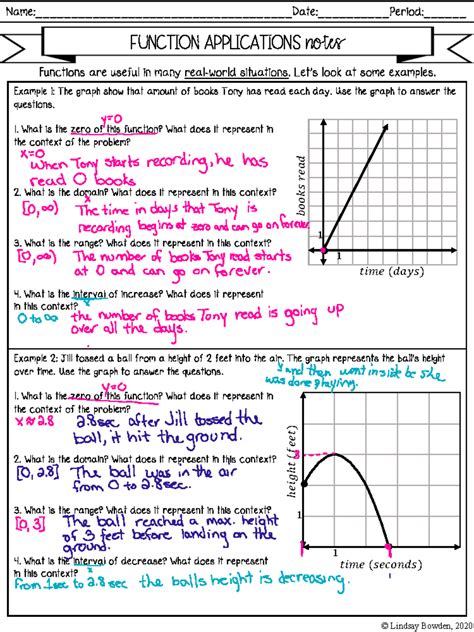 Name: Date: Period:
FUNCTION APPLICATIONS notes
Functions are useful in many real-world situations. Let's look at some examples.
Example 1: The graph show that amount of books Tony has read each day. Use the graph to answer the
questions.
y=0
1. What is the zero of this function? What does it represent in
the context of the problem?
x=0
When Tony starts recording, he has
read 0 books
2. What is the domain? What does it represent in this context?
[0,∞) The time in days that Tony is
recording begins at zero and can go on forever
3. What is the range? What does it represent in this context?
[0,∞) The number of books Tony read starts
at 0 and can go on forever.
4. What is the interval of increase? What does it represent
in this context?
0 to ∞ the number of books Tony read is going up
over all the days.
books read
1
1
time (days)
Example 2: Jill tossed a ball from a height of 2 feet into the air. The graph represents the ball's height
over time. Use the graph to answer the questions.
and then went inside bc she
was done playing.
y=0
1. What is the zero of this function? What does it represent in
the context of the problem?
x≈2.8 2.8sec after Jill tossed the
ball, it hit the ground.
2. What is the domain? What does it represent in this context?
[0, 2.8] The ball was in the air
from 0 to 2.8sec
3. What is the range? What does it represent in this context?
[0, 3] The ball reached a max. height
of 3 feet before landing on the
ground.
4. What is the interval of decrease? What does it represent
in this context?
From 1sec to 2.8sec the balls height is decreasing.
height (feet)
3
1
1
time (seconds)
© Lindsay Bowden, 2020